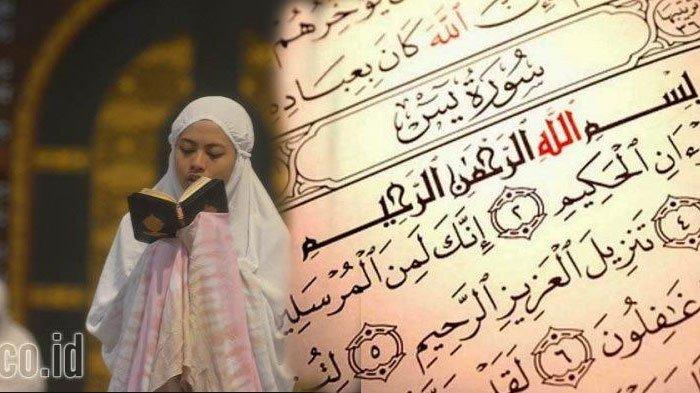 يُؤَخِّرُهُمْ
ٱللَّهَ كَانَ بِعِبَادِهِ
سُورَةُ يسٓ
بِسْمِ ٱللَّهِ ٱلرَّحْمَٰنِ ٱلرَّحِيمِ
ءَانِ ٱلْحَكِيمِ ٢ إِنَّكَ لَمِنَ ٱلْمُرْسَلِينَ
٤ تَنزِيلَ ٱلْعَزِيزِ ٱلرَّحِيمِ ٥
غَٰفِلُونَ ٦ لَقَدْ
co.id